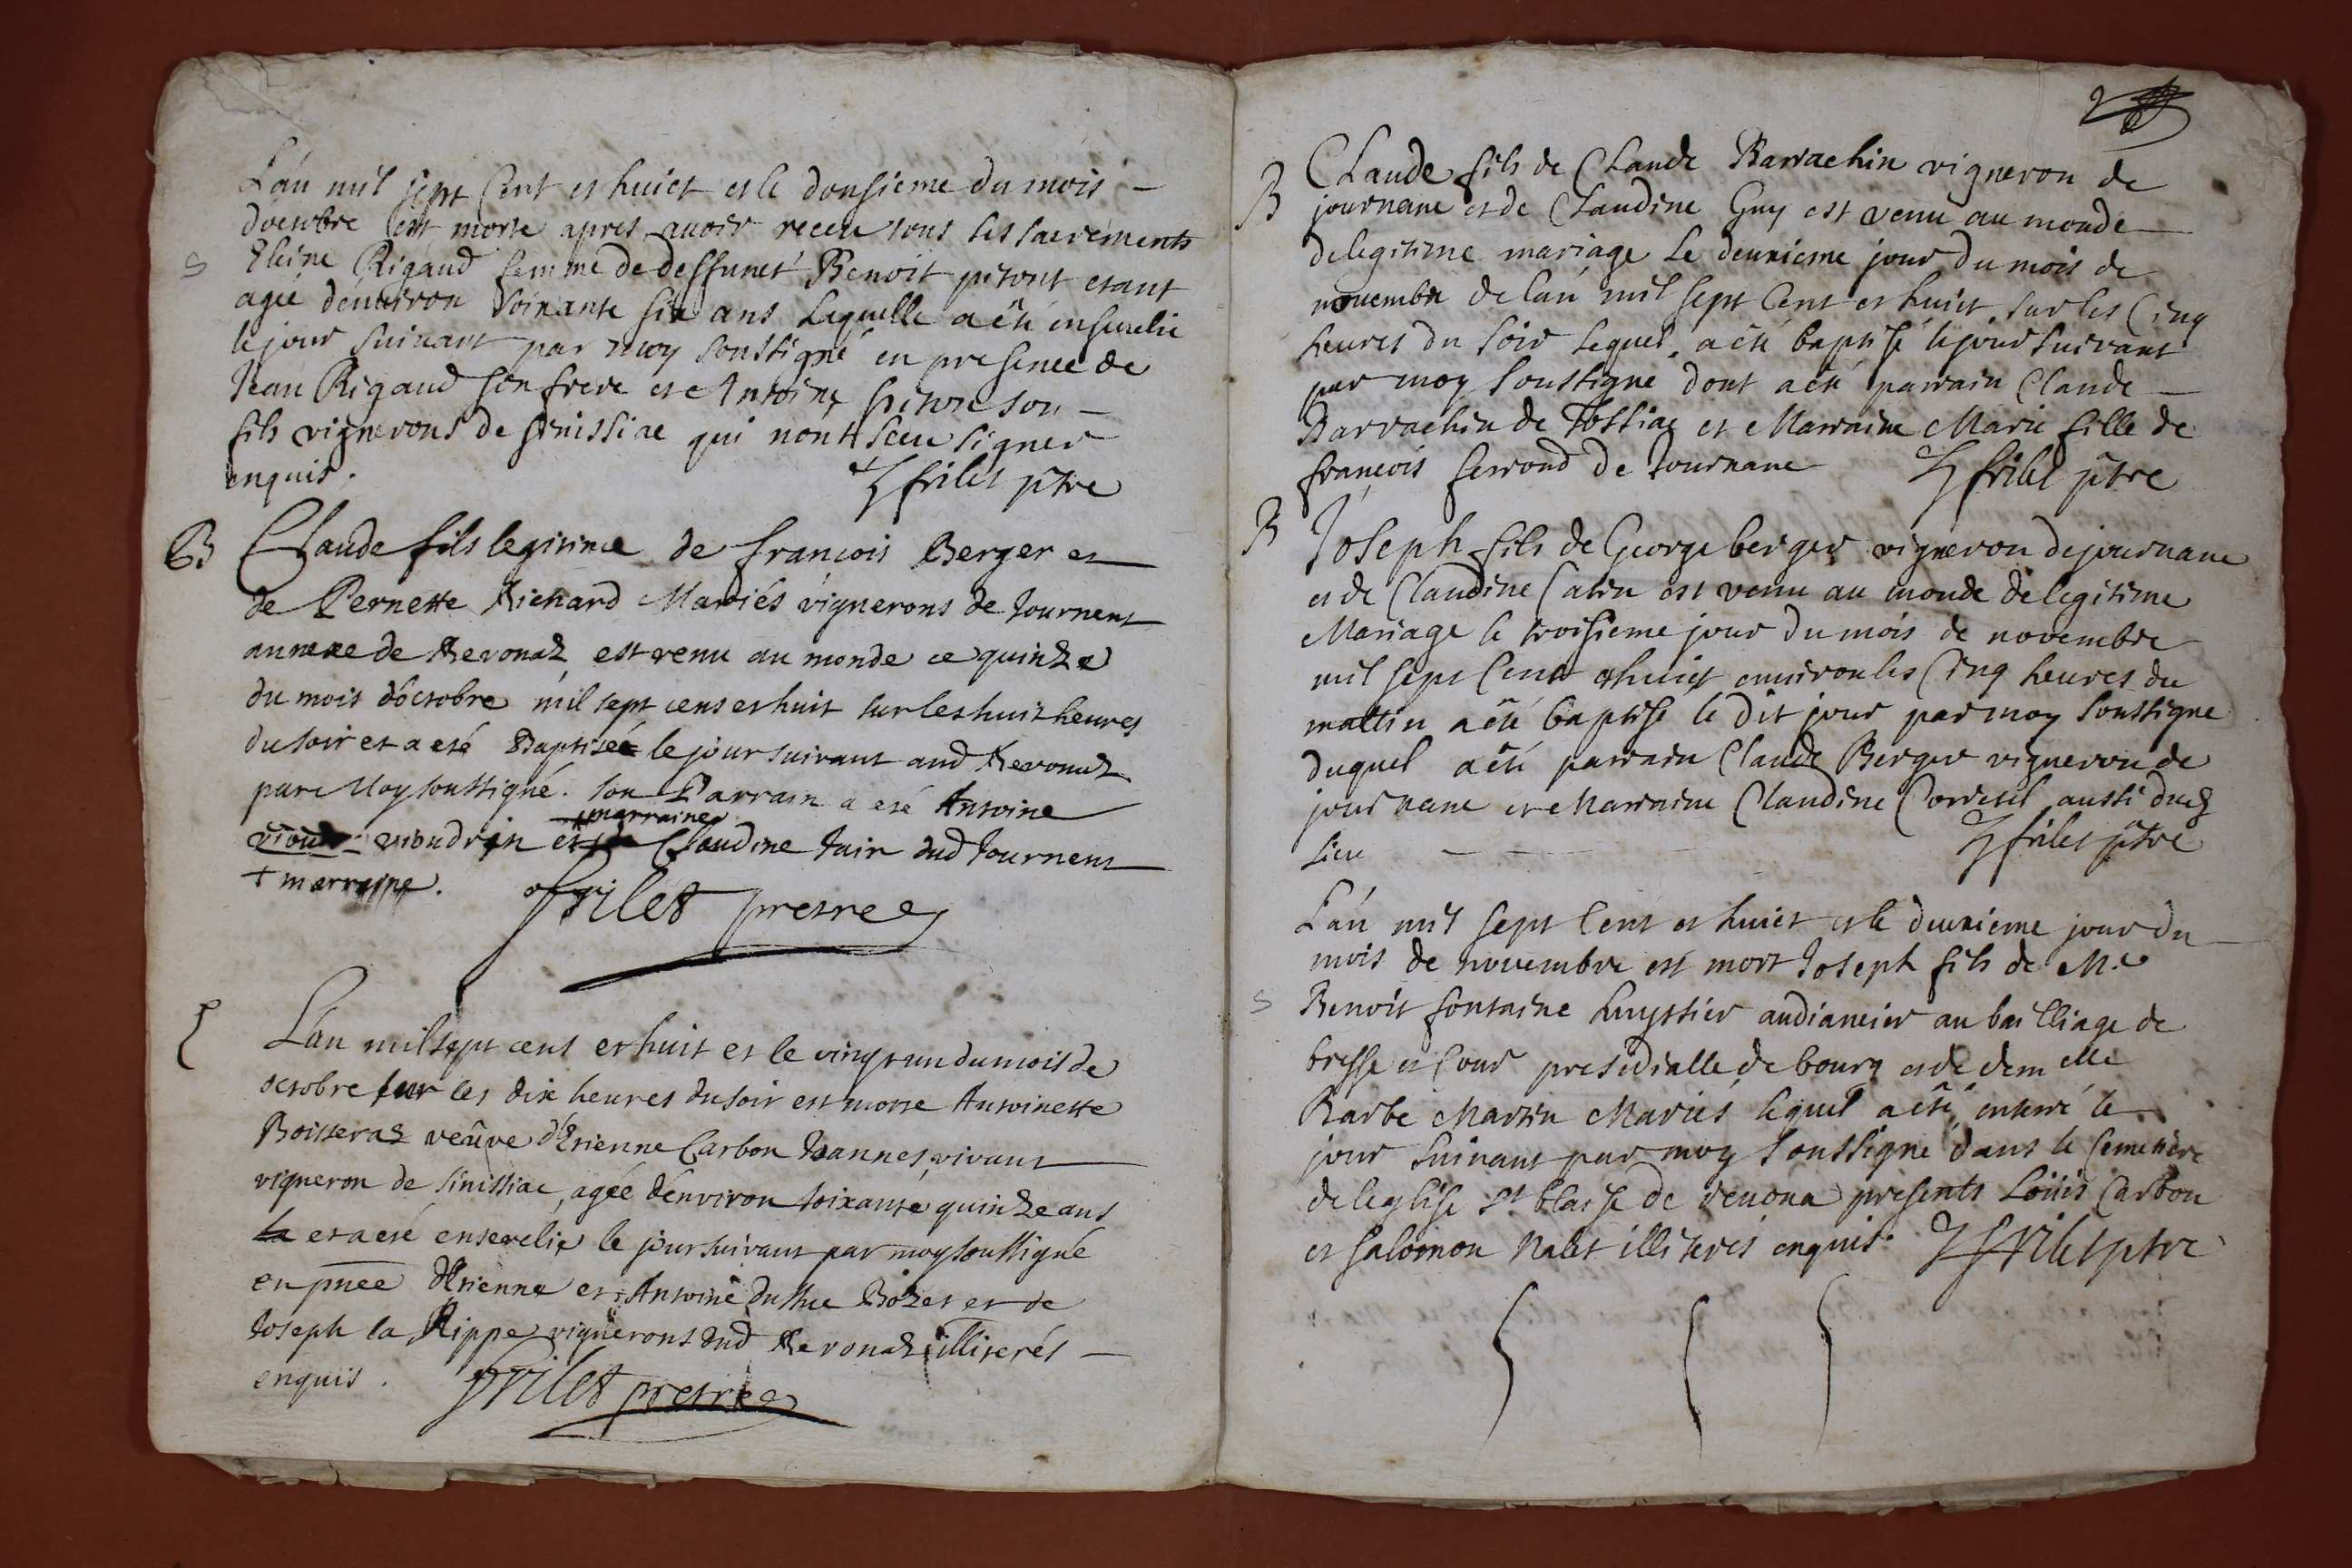 L'an mil sept Cent et huict et le dousieme du mois -
doctobre est morte apres avoir receu tous les sacrements
S Eleine Rigaud femme de deffunct Benoit pitout etant
agée d'environ soixante six ans Lequelle a été enseuelie
le jour suivant par moy soussigné en presence de
Jean Rigaud son frere et Antoine pitout son -
fils vignerons de sinissiac qui nont sceu signer
enquis. frilet ptre
B Claude fils legitime de francois Berger et
de Pernette Richard Mariés vignerons de Journent
annexe de Revonaz est venu au monde ce quinze
du mois d'octobre mil sept cens et huit sur les huit heures
du soir et a eté Baptisée le jour suivant aud Revonaz
par Moy soussigné. son Parrain a eté Antoine
marraine
vioudrin et Claudine tain dud Journent
+ marraine. frilet prestre
L'an mil sept cens et huit et le vingt un du mois de
octobre sur les dix heures du soir est morte Antoinette
Boisseraz veûve d'Etienne Carbon Jannet, vivant
vigneron de sinissiac, agée d'environ soixante quinze ans
la et a eté ensevelie le jour suivant par moy soussigné
en pnce d'Etienne et Antoine du Bozet et de
Joseph la Rippe vignerons dud Revonaz illiterés -
enquis. frilet prestre
2
B Claude fils de Claude Barrachin vigneron de
journane et de Claudine Guy est venu au monde
de legitime mariage Le deuxieme jour du mois de
novembre de l'an mil sept Cent et huict sur les Cinq
heures du soir Lequel a été baptisé le jour suivant
par moy soussigné dont a été parrain Claude
Barrachin de Tossiac et Marraine Marie fille de
françois ferrond de Journane frilet ptre
B Joseph fils de George berger vigneron de journane
et de Claudine Catin est venu au monde de legitime
Mariage le troisieme jour du mois de novembre
mil sept Cent et huict environ les Cinq heures du
mattin a été baptisé le dit jour par moy soussigné
duquel a été parrain Claude Berger vigneron de
journane et Marraine Claudine aussi dud
Lieu - frilet ptre
L'an mil sept Cent et huict et le deuxieme jour du
mois de novembre est mort Joseph fils de M.e
S Benoit fontaine huyssier audiancier au bailliage de
bresse et Cour presidialle de bourg et de demelle
Barbe Martin Mariés, lequel a été enterré le
jour suivant par moy soussigné dans le Cemetiere
de leglise st blaise de revona presents Loüis Carbon
et salomon Nalet illiterés enquis. frilet ptre